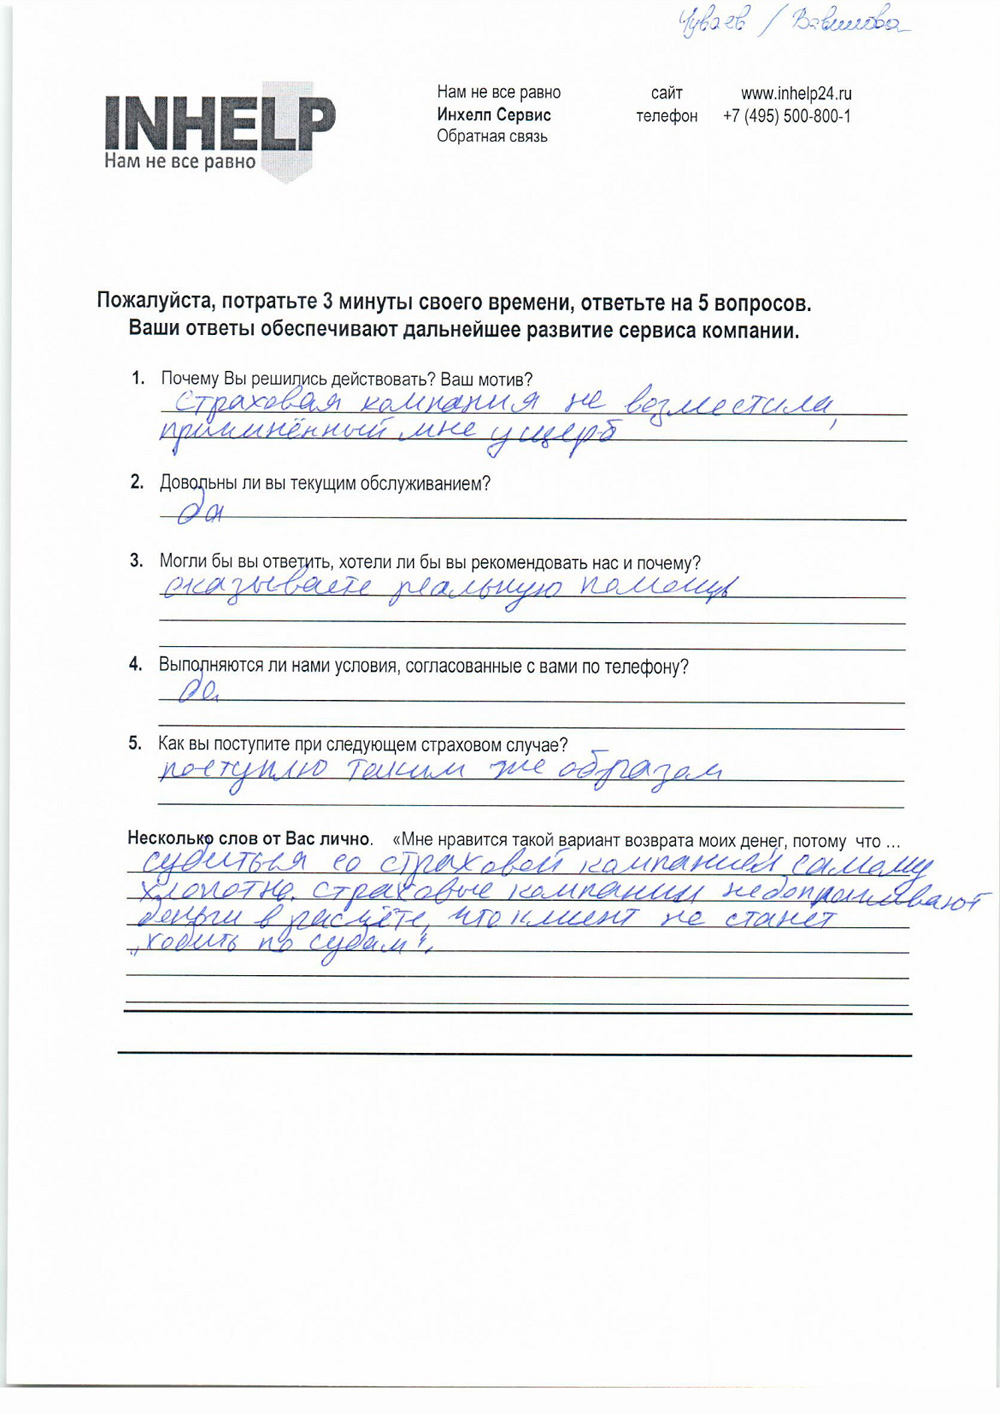 Чуваев / Вавилова
INHELP
Нам не все равно
Нам не все равно
Инхелп Сервис
Обратная связь
сайт www.inhelp24.ru
телефон +7 (495) 500-800-1
Пожалуйста, потратьте 3 минуты своего времени, ответьте на 5 вопросов.
Ваши ответы обеспечивают дальнейшее развитие сервиса компании.
1. Почему Вы решились действовать? Ваш мотив?
страховая компания не возместила,
причинённый мне ущерб
2. Довольны ли вы текущим обслуживанием?
да
3. Могли бы вы ответить, хотели ли бы вы рекомендовать нас и почему?
оказываете реальную помощь
4. Выполняются ли нами условия, согласованные с вами по телефону?
да
5. Как вы поступите при следующем страховом случае?
поступлю таким же образом
Несколько слов от Вас лично. «Мне нравится такой вариант возврата моих денег, потому что ...
судиться со страховой компанией самому
хлопотно. страховые компании недоплачивают
деньги в расчёте, что клиент не станет
„ходить по судам".